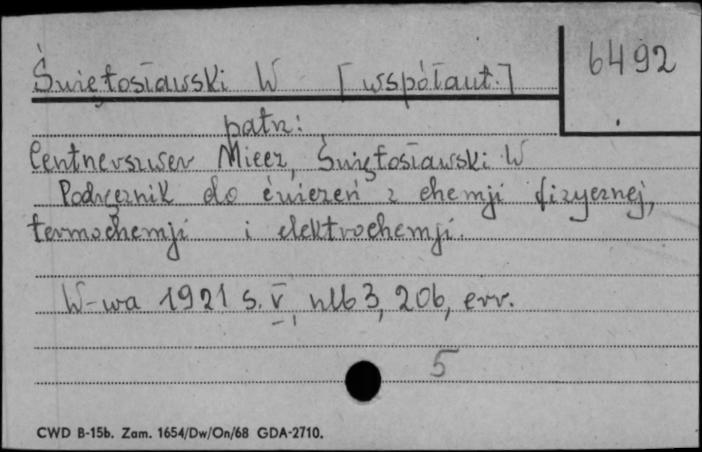 Świętosławski W [współaut.]
6492
patrz:
Centnerszwer Miecz, Świętosławski W
Podręcznik do ćwiczeń z chemji fizycznej,
termochemji i elektrochemji.
W-wa 1921 s. V, nlb 3, 206, err.
5
CWD B-15b. Zam. 1654/Dw/On/68 GDA-2710.